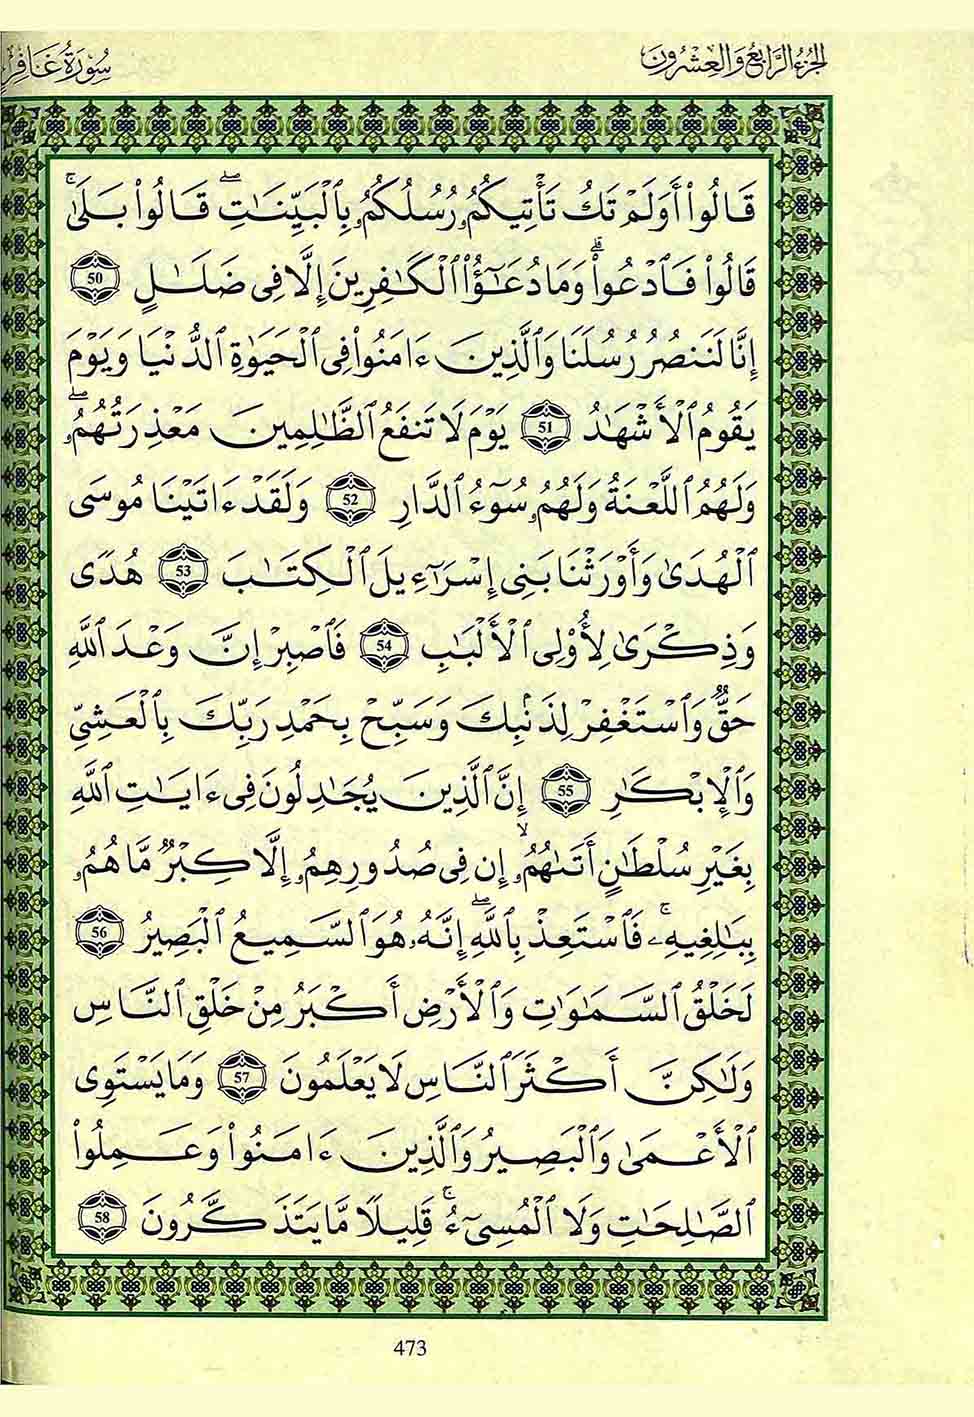 الجزء الرابع والعشرون
سورة غافر
قَالُوٓا۟ أَوَلَمْ تَكُ تَأْتِيكُمُۥ رُسُلُكُمُۥ بِٱلْبَيِّنَـٰتِۖ قَالُوا۟ بَلَىٰۚ
قَالُوا۟ فَٱدْعُوا۟ۗ وَمَا دُعَـٰٓؤُا۟ ٱلْكَـٰفِرِينَ إِلَّا فِى ضَلَـٰلٍ 50
إِنَّا لَنَنصُرُ رُسُلَنَا وَٱلَّذِينَ ءَامَنُوا۟ فِى ٱلْحَيَوٰةِ ٱلدُّنْيَا وَيَوْمَ
يَقُومُ ٱلْأَشْهَـٰدُ 51 يَوْمَ لَا تَنفَعُ ٱلظَّـٰلِمِينَ مَعْذِرَتُهُمُۥۖ
وَلَهُمُ ٱللَّعْنَةُ وَلَهُمُۥ سُوٓءُ ٱلدَّارِ 52 وَلَقَدْ ءَاتَيْنَا مُوسَى
ٱلْهُدَىٰ وَأَوْرَثْنَا بَنِىٓ إِسْرَٰٓءِيلَ ٱلْكِتَـٰبَ 53 هُدًى
وَذِكْرَىٰ لِأُو۟لِى ٱلْأَلْبَـٰبِ 54 فَٱصْبِرْ إِنَّ وَعْدَ ٱللَّهِ
حَقٌّ وَٱسْتَغْفِرْ لِذَنۢبِكَ وَسَبِّحْ بِحَمْدِ رَبِّكَ بِٱلْعَشِىِّ
وَٱلْإِبْكَـٰرِ 55 إِنَّ ٱلَّذِينَ يُجَـٰدِلُونَ فِىٓ ءَايَـٰتِ ٱللَّهِ
بِغَيْرِ سُلْطَـٰنٍ أَتَىٰهُمُۥۙ إِن فِى صُدُورِهِمُۥٓ إِلَّا كِبْرٌ مَّا هُمُۥ
بِبَـٰلِغِيهِۦۚ فَٱسْتَعِذْ بِٱللَّهِۖ إِنَّهُۥ هُوَ ٱلسَّمِيعُ ٱلْبَصِيرُ 56
لَخَلْقُ ٱلسَّمَـٰوَٰتِ وَٱلْأَرْضِ أَكْبَرُ مِنْ خَلْقِ ٱلنَّاسِ
وَلَـٰكِنَّ أَكْثَرَ ٱلنَّاسِ لَا يَعْلَمُونَ 57 وَمَا يَسْتَوِى
ٱلْأَعْمَىٰ وَٱلْبَصِيرُ وَٱلَّذِينَ ءَامَنُوا۟ وَعَمِلُوا۟
ٱلصَّـٰلِحَـٰتِ وَلَا ٱلْمُسِىٓءُۚ قَلِيلًا مَّا يَتَذَكَّرُونَ 58
473